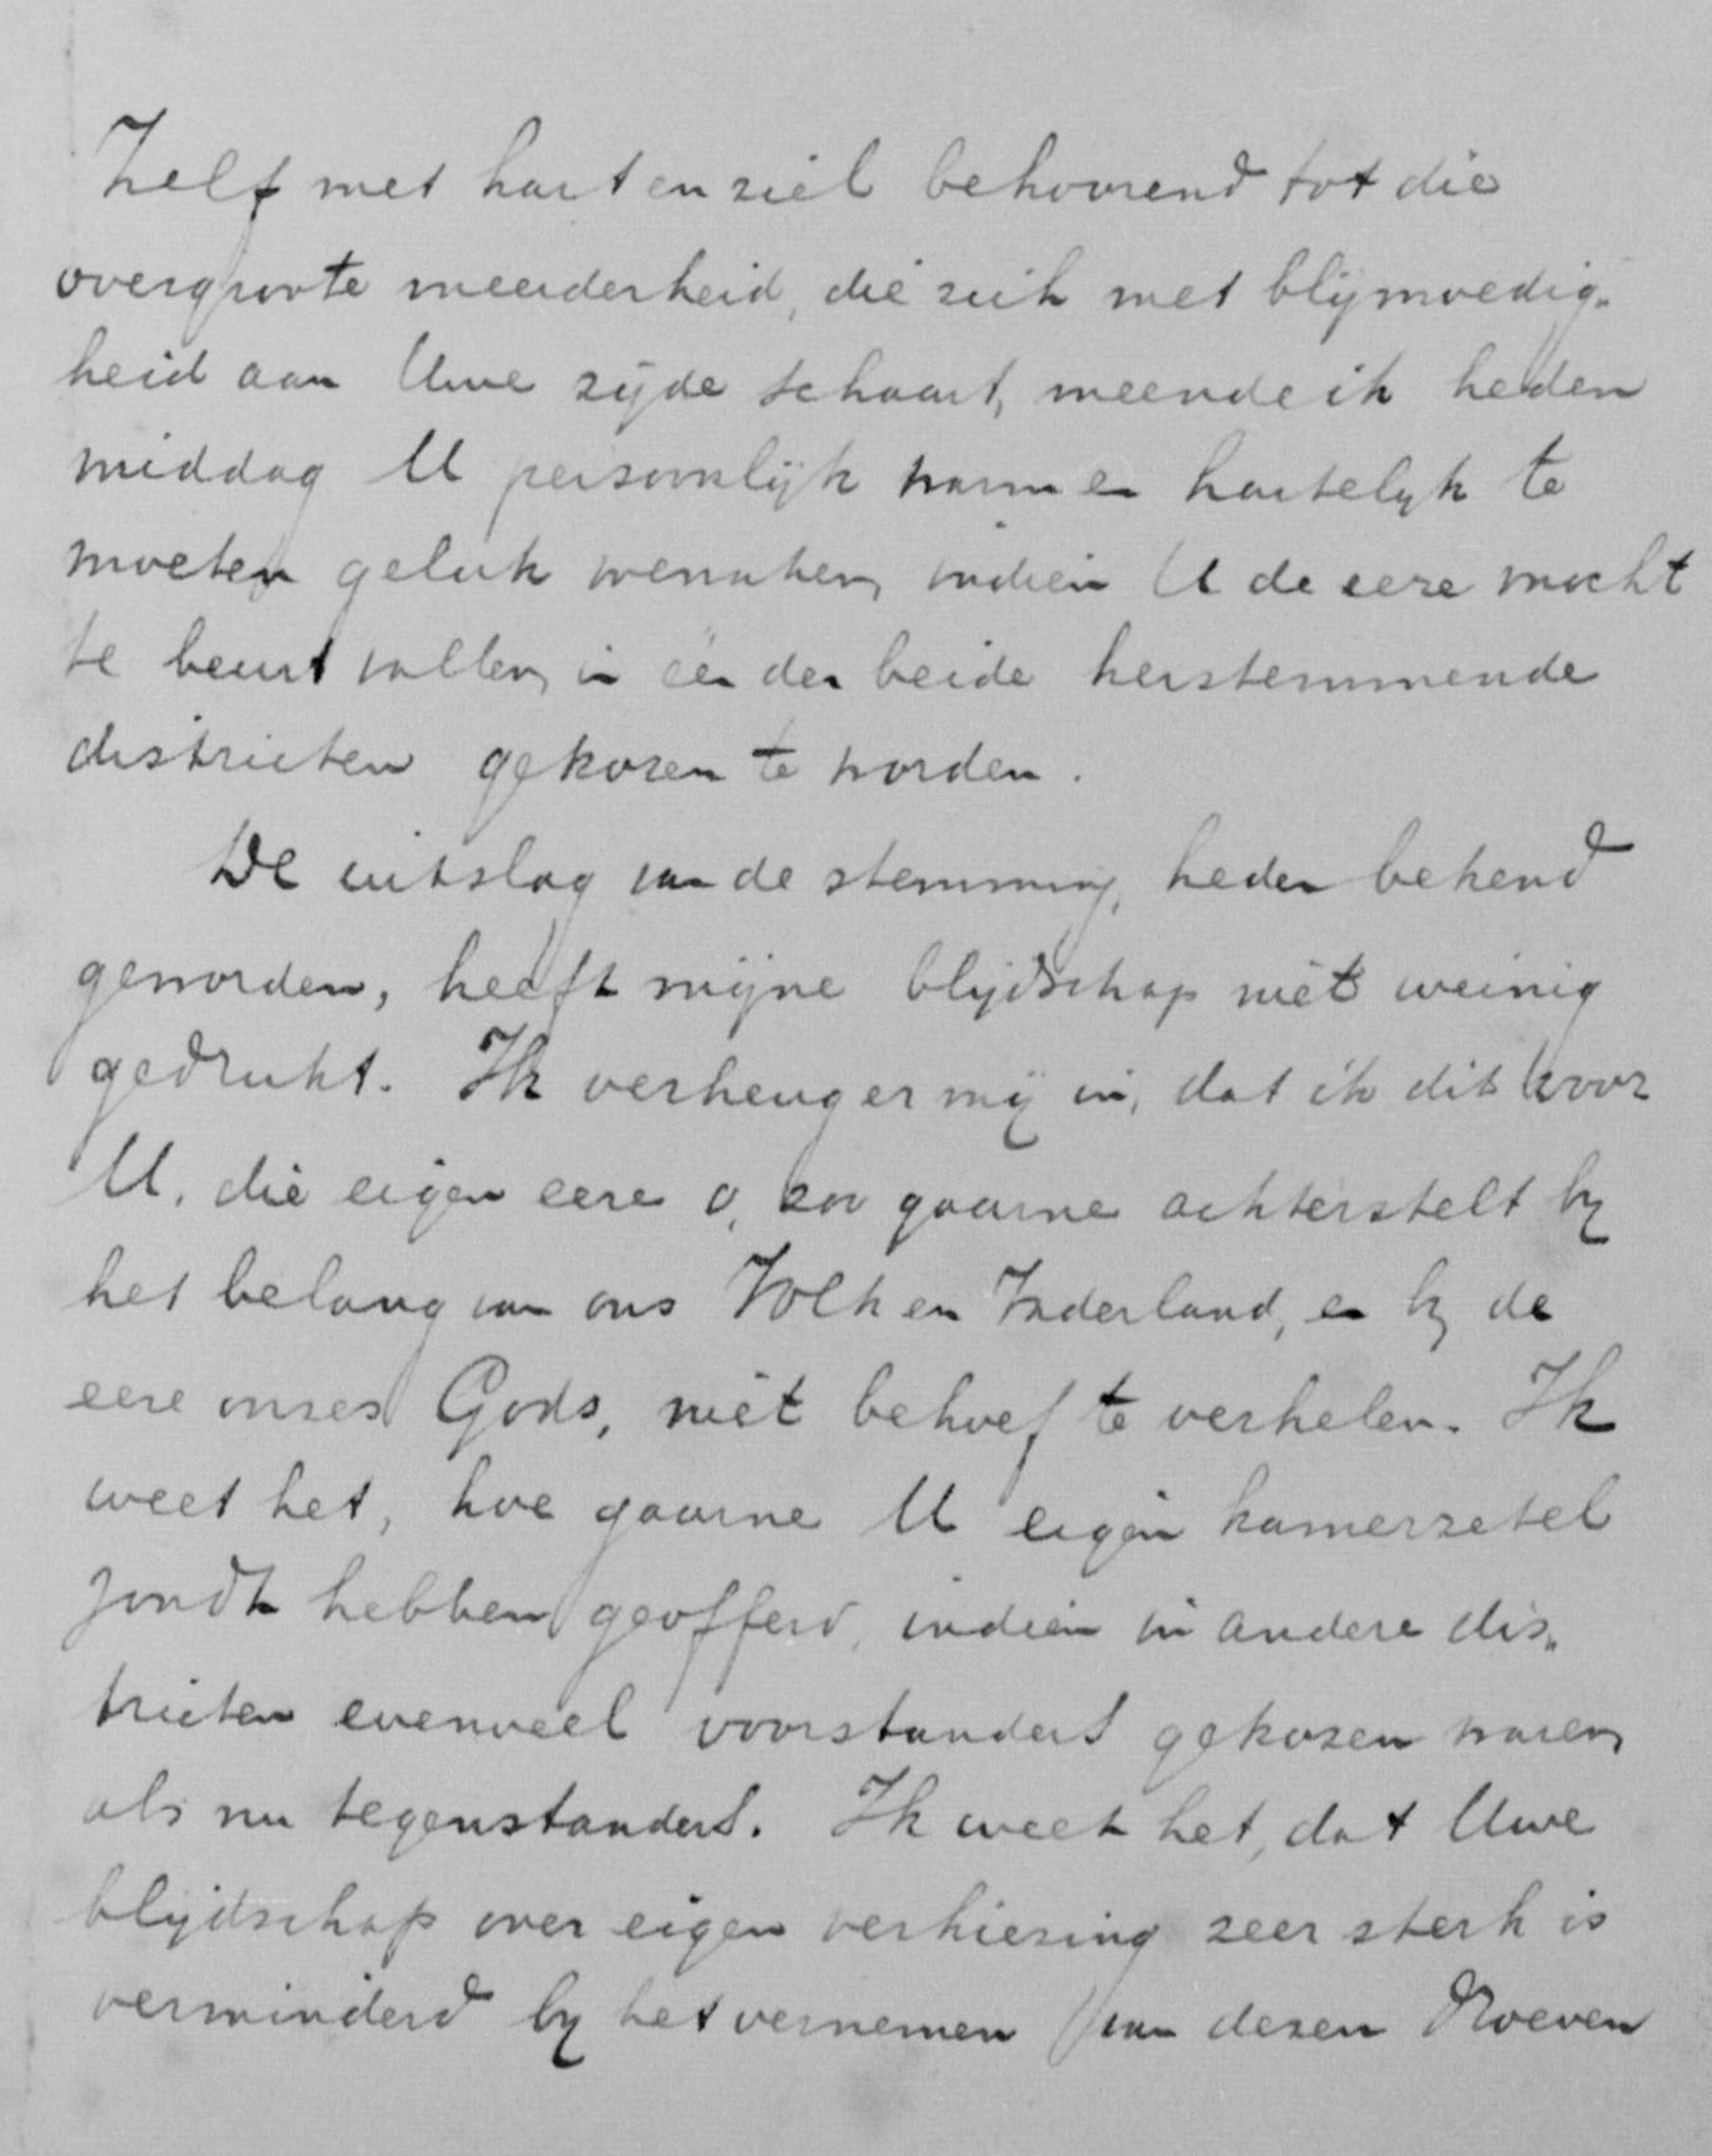 Zelf met hart en ziel behoorend tot die
overgroote meerderheid, die zich met blijmoedig-
heid aan Uwe zijde schaart, meende ik heden
middag U persoonlijk warm en hartelijk te
moeten geluk wenschen, indien U de eere mocht
te beurt vallen, in één der beide herstemmende
districten gekozen te worden.
De uitslag van de stemming, heden bekend
geworden, heeft mijne blijdschap niet weinig
gedrukt. Ik verheug er mij in, dat ik dit voor
U, die eigen eere o, zoo gaarne achterstelt bij
het belang van ons Volk en Vaderland, en bij de
eere onzes Gods, niet behoef te verhelen. Ik
weet het, hoe gaarne U eigen kamerzetel
zoudt hebben geofferd, indien in andere dis-
tricten evenveel voorstanders gekozen waren,
als nu tegenstanders. Ik weet het, dat Uwe
blijdschap over eigen verkiezing zeer sterk is
verminderd bij het vernemen van dezen droeven